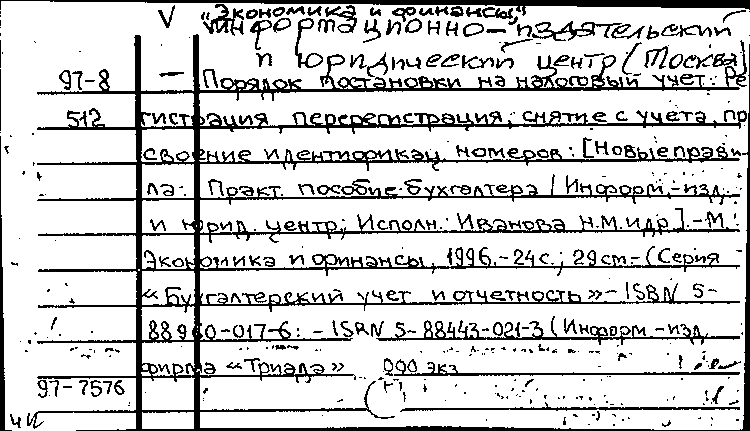 V „Экономика и финансы,"
Информационно-издательский
и юридический центр (Москва)
97-8 — Порядок постановки на налоговый учет: Ре
512 гистрация, перерегистрация, снятие с учета, пр
своение идентификац. номеров: [Новые прави-
ла: Практ. пособие бухгалтера / Информ.-изд.
и юрид. центр; Исполн.: Иванова Н.М. и др.].-М.:
Экономика и финансы, 1996.-24с.; 29см-(Серия
«Бухгалтерский учет и отчетность»-ISBN 5-
88960-017-6: -ISBN 5-88443-021-3 (Информ-изд.
фирма «Триада» 000 экз
97-7576
ЧИ